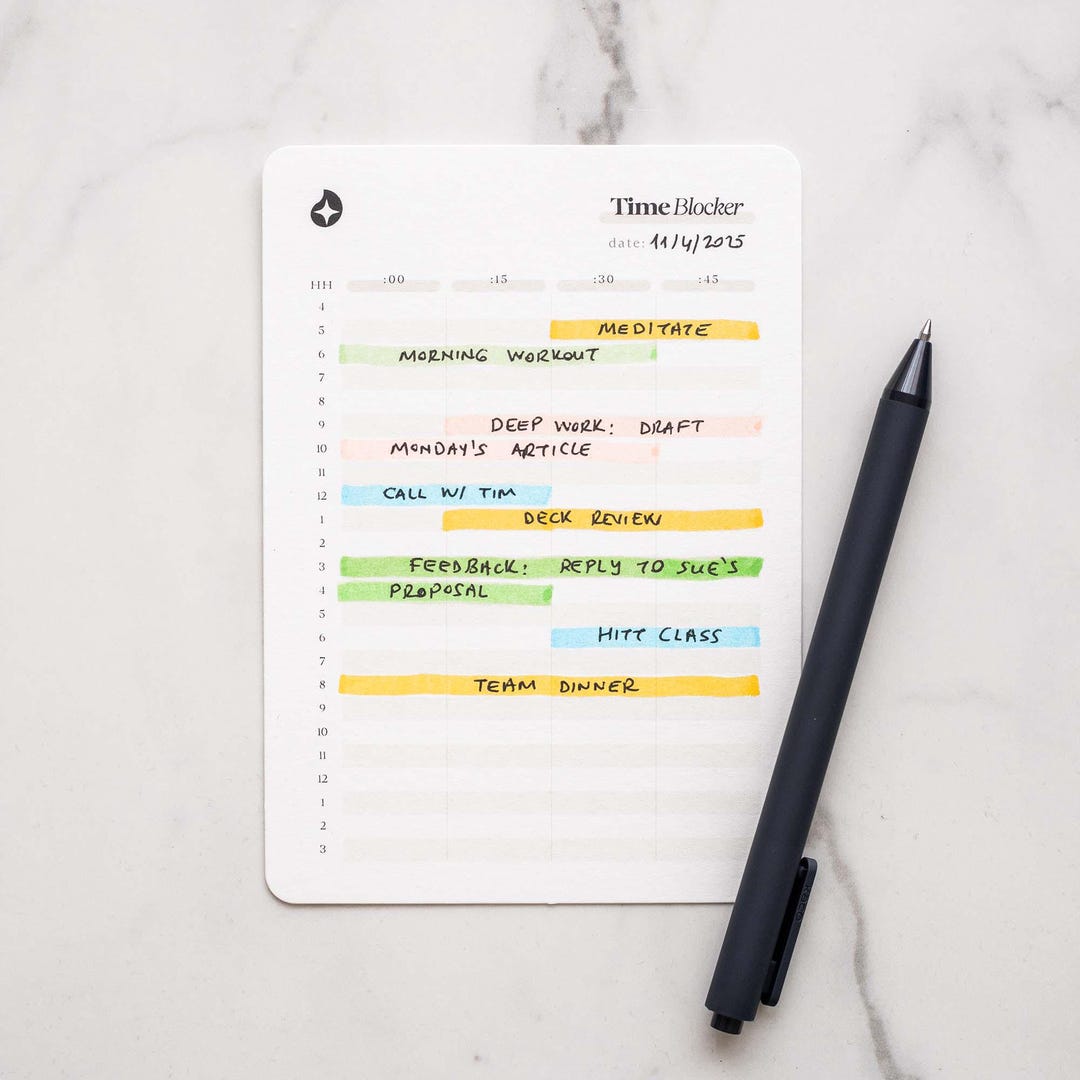 Time Blocker
date: 11/4/2025
HH :00 :15 :30 :45
4
5 MEDITATE
6 MORNING WORKOUT
7
8
9 DEEP WORK: DRAFT
10 MONDAY'S ARTICLE
11
12 CALL W/ TIM
1 DECK REVIEW
2
3 FEEDBACK: REPLY TO SUE'S
4 PROPOSAL
5
6 HITT CLASS
7
8 TEAM DINNER
9
10
11
12
1
2
3